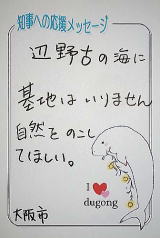 知事への応援メッセージ
辺野古の海に
基地はいりません
自然をのこし
てほしい。
I ❤
dugong
大阪市